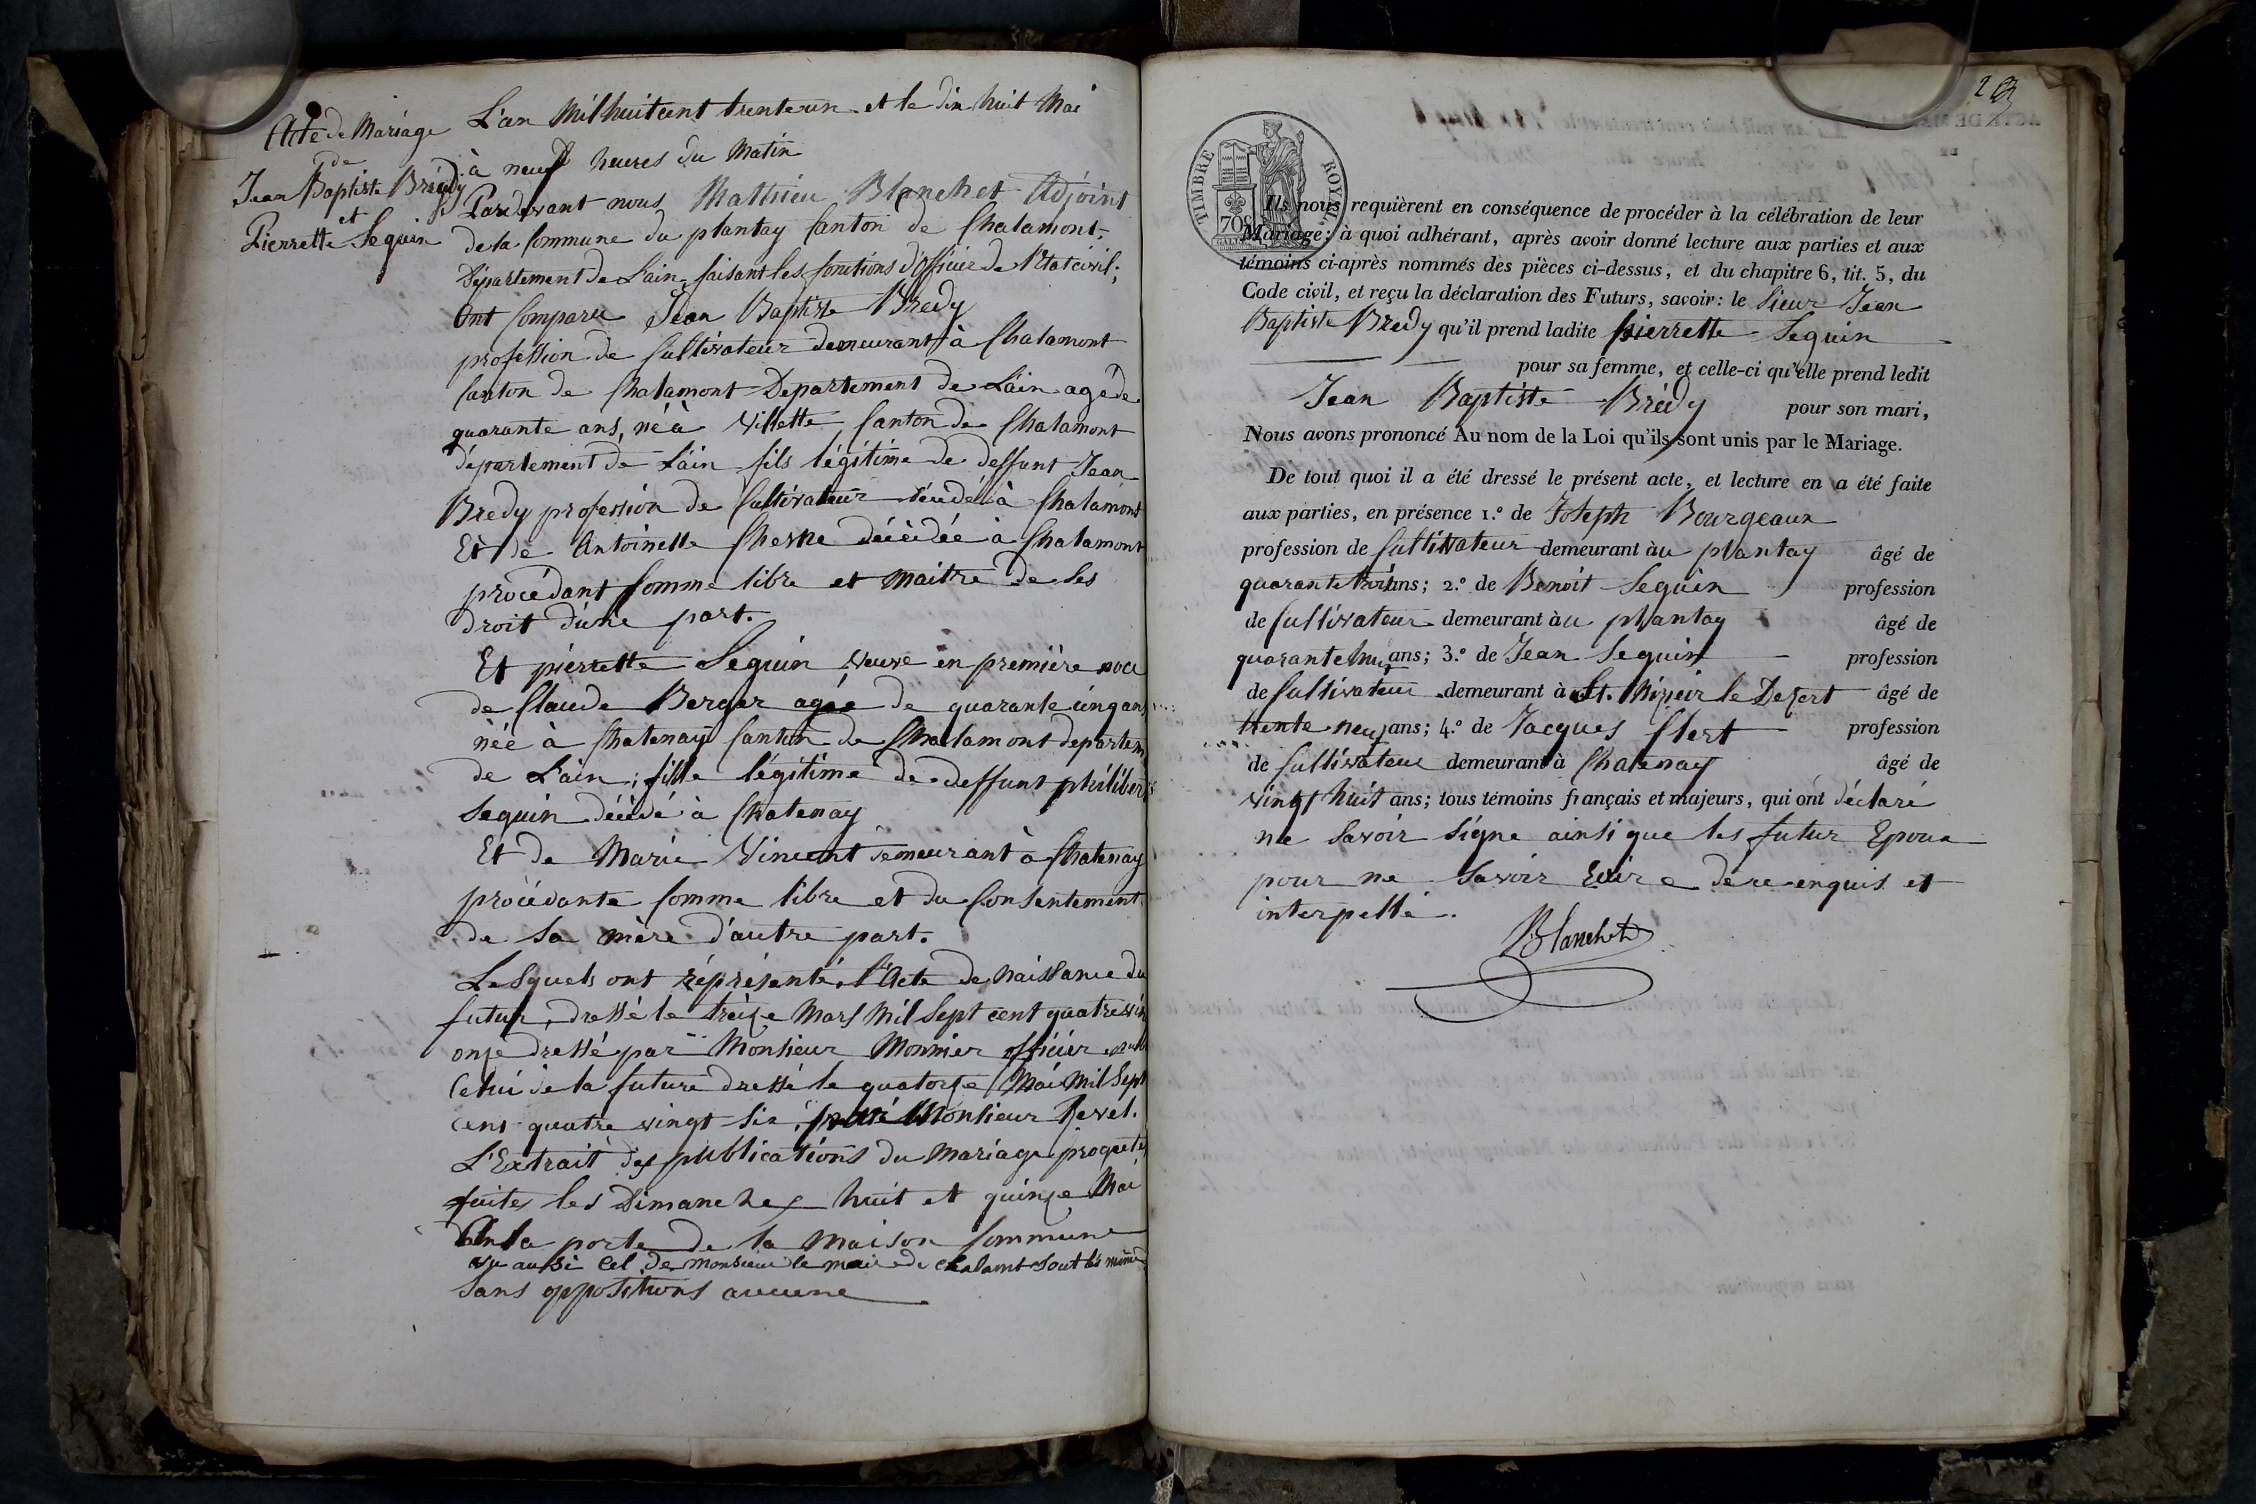 Acte de Mariage
de
Jean Baptiste Brédy
et
Pierrette Seguin
L'an Mil huit cent trente un et le dix huit Mai
à neuf heures du Matin
Pardevant nous Mathieu Blanchet Adjoint
de la Commune du plantay Canton de Chalamont,
Département de L'ain, faisant les fonctions d'Officier de l'Etat civil;
Ont Comparu Jean Baptiste Bredy
profession de Cultivateur demeurant à Chalamont
Canton de Chalamont Departement de L'ain agé de
quarante ans, né à Villette Canton de Chalamont
département de L'ain fils légitime de deffunt Jean
Bredy profession de Cultivateur décédé à Chalamont
Et de Antoinette Chesne décédée à Chalamont
procédant Comme libre et Maitre de ses
droit d'une part.
Et pierrette Seguin Veuve en premiére noce
de Claude Berger agée de quarante cinq ans
née à Chatenay Canton de Chalamont departem
de L'ain, fille légitime de deffunt philibert
Seguin décédé à Chatenay
Et de Marie Vincent demeurant à Chatenay
procédante Comme libre et du Consentement
de sa mère d'autre part.
Lesquels ont réprésenté l'Acte de Naissance du
futur, dressé le treize Mars Mil Sept cent quatre vin
onze dressé par Monsieur Monnier officier
Celui de la future dressé le quatorze Mai Mil Sept
cent quatre vingt six, Monsieur Revel.
L'Extrait des publications du Mariage proqueté
faites les Dimanches huit et quinze Mai
la porte de la Maison Commune
vu aussi Cel de monsieur le maire de chalamt sout les même
Sans oppositions aucune
TIMBRE ROYAL
70c
Ils nous requièrent en conséquence de procéder à la célébration de leur
Mariage; à quoi adhérant, après avoir donné lecture aux parties et aux
témoins ci-après nommés des pièces ci-dessus, et du chapitre 6, tit. 5, du
Code civil, et reçu la déclaration des Futurs, savoir: le Sieur Jean
Baptiste Bredy qu'il prend ladite pierrette Seguin
pour sa femme, et celle-ci qu'elle prend ledit
Jean Baptiste Brédy pour son mari,
Nous avons prononcé Au nom de la Loi qu'ils sont unis par le Mariage.
De tout quoi il a été dressé le présent acte, et lecture en a été faite
aux parties, en présence 1.º de Joseph Bourgeaux
profession de Cultivateur demeurant àu plantay âgé de
quarante trois ans; 2.º de Benoit Seguin profession
de Cultivateur demeurant àu plantay âgé de
quarante huit ans; 3.º de Jean Seguin profession
de Cultivateur demeurant à St. Nizier le Dezert âgé de
trente neuf ans; 4.º de Jacques Clert profession
de Cultivateur demeurant à Chatenay âgé de
vingt huit ans; tous témoins français et majeurs, qui ont déclaré
ne Savoir Signe ainsi que les futur Epoux
pour ne Savoir Ecire de ce enquis et
interpellé.
Blanchet